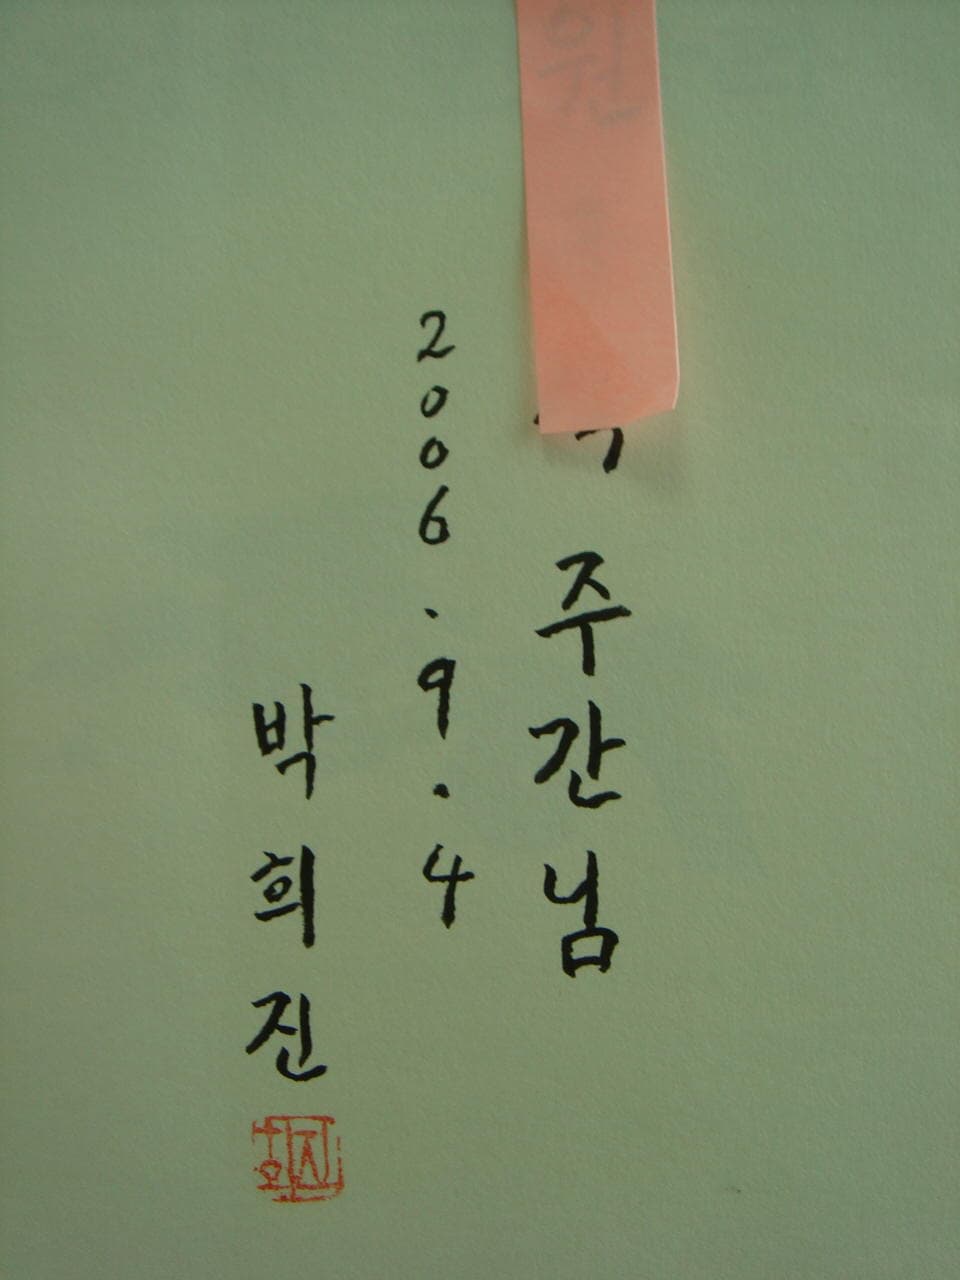 주간님
2006.9.4
박희진